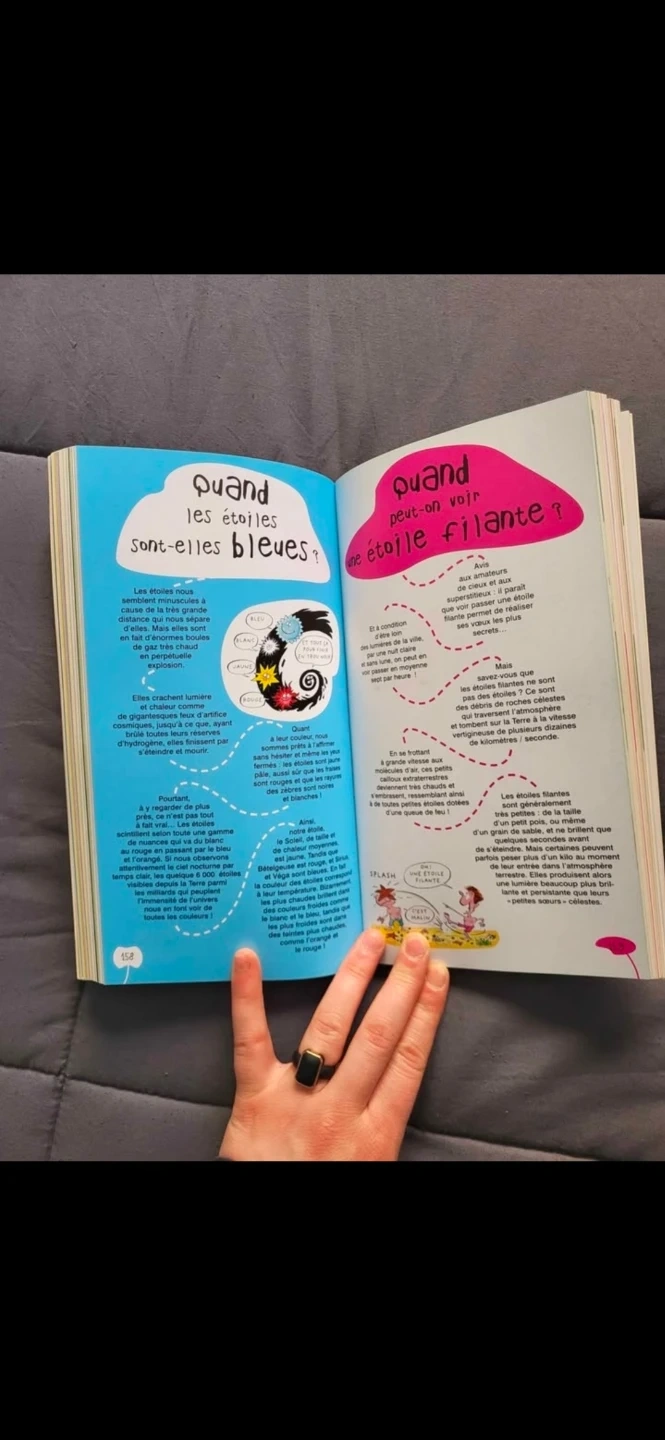 Quand
les étoiles
sont-elles bleues ?
Les étoiles nous
semblent minuscules à
cause de la très grande
distance qui nous sépare
d'elles. Mais elles sont
en fait d'énormes boules
de gaz très chaud
en perpétuelle
explosion.
BLEU
BLANC
JAUNE
ROUGE
Elles crachent lumière
et chaleur comme
de gigantesques feux d'artifice
cosmiques, jusqu'à ce que, ayant
brûlé toutes leurs réserves
d'hydrogène, elles finissent par
s'éteindre et mourir.
Quant
à leur couleur, nous
sommes prêts à l'affirmer
sans hésiter et même les yeux
fermés : les étoiles sont jaune
pâle, aussi sûr que les fraises
sont rouges et que les rayures
des zèbres sont noires
et blanches !
Pourtant,
à y regarder de plus
près, ce n'est pas tout
à fait vrai... Les étoiles
scintillent selon toute une gamme
de nuances qui va du blanc
au rouge en passant par le bleu
et l'orangé. Si nous observons
attentivement le ciel nocturne par
temps clair, les quelque 6 000 étoiles
visibles depuis la Terre parmi
les milliards qui peuplent
l'immensité de l'univers
nous en font voir de
toutes les couleurs !
Ainsi,
notre étoile,
le Soleil, de taille et
de chaleur moyennes,
est jaune. Tandis que
Bételgeuse est rouge, et Sirius
et Véga sont bleues. En fait
la couleur des étoiles correspond
à leur température. Bizarrement
les plus chaudes brillent dans
des couleurs froides comme
le blanc et le bleu, tandis que
les plus froides sont dans
des teintes plus chaudes,
comme l'orangé et
le rouge !
158
Quand
peut-on voir
une étoile filante ?
Avis
aux amateurs
de cieux et aux
superstitieux : il paraît
que voir passer une étoile
filante permet de réaliser
ses vœux les plus
secrets...
Et à condition
d'être loin
des lumières de la ville,
par une nuit claire
et sans lune, on peut en
voir passer en moyenne
sept par heure !
Mais
savez-vous que
les étoiles filantes ne sont
pas des étoiles ? Ce sont
des débris de roches célestes
qui traversent l'atmosphère
et tombent sur la Terre à la vitesse
vertigineuse de plusieurs dizaines
de kilomètres / seconde.
En se frottant
à grande vitesse aux
molécules d'air, ces petits
cailloux extraterrestres
deviennent très chauds et
s'embrasent, ressemblant ainsi
à de toutes petites étoiles dotées
d'une queue de feu !
Les étoiles filantes
sont généralement
très petites : de la taille
d'un petit pois, ou même
d'un grain de sable, et ne brillent que
quelques secondes avant
de s'éteindre. Mais certaines peuvent
parfois peser plus d'un kilo au moment
de leur entrée dans l'atmosphère
terrestre. Elles produisent alors
une lumière beaucoup plus bril-
lante et persistante que leurs
« petites sœurs » célestes.
SPLASH
OH !
UNE ÉTOILE
FILANTE
C'EST
MALIN